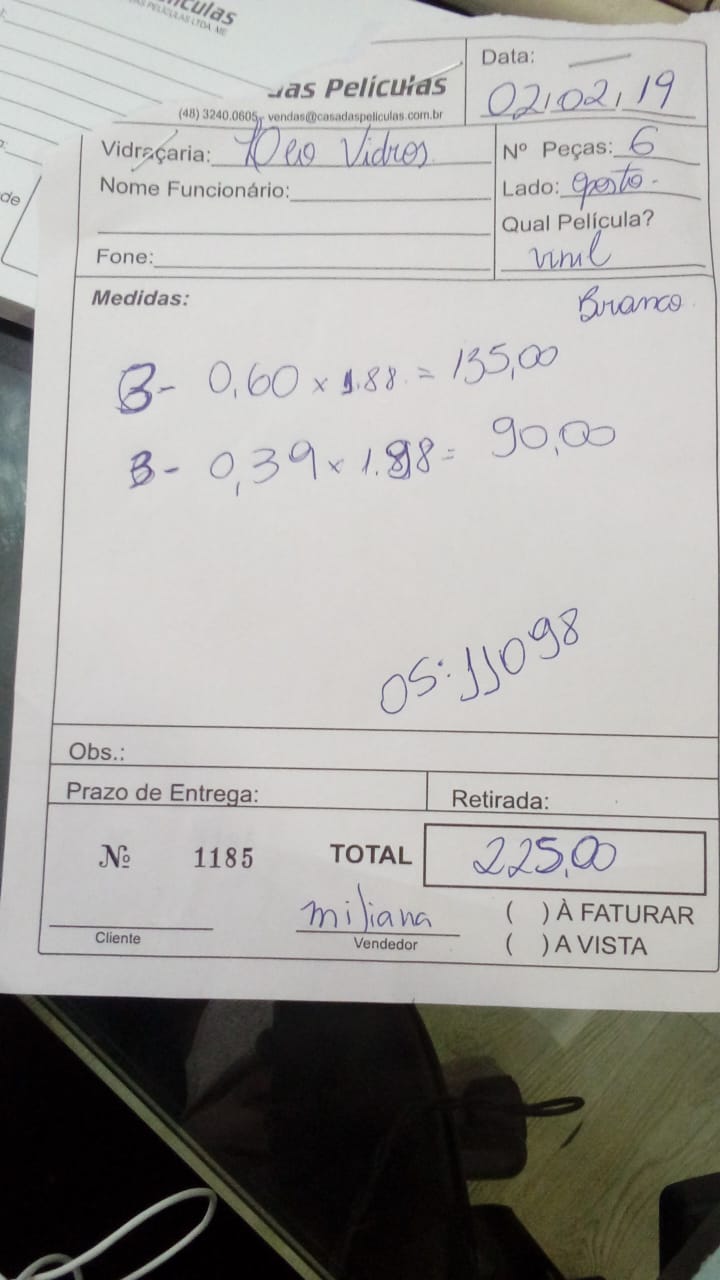 ículas
AS PELÍCULAS LTDA. ME
das Películas
(48) 3240.0605, vendas@casadaspeliculas.com.br
Data:
02,02,19
Vidraçaria: Deo Vidros
Nome Funcionário:
Fone:
Nº Peças: 6
Lado: oposto.
Qual Película?
Vinil
Branco
Medidas:
3- 0,60 x 1.88. = 135,00
3- 0,39 x 1.88 = 90,00
OS: 11098
Obs.:
Prazo de Entrega:
Retirada:
Nº 1185
TOTAL 225,00
Cliente
miliana
Vendedor
( ) À FATURAR
( ) A VISTA
de